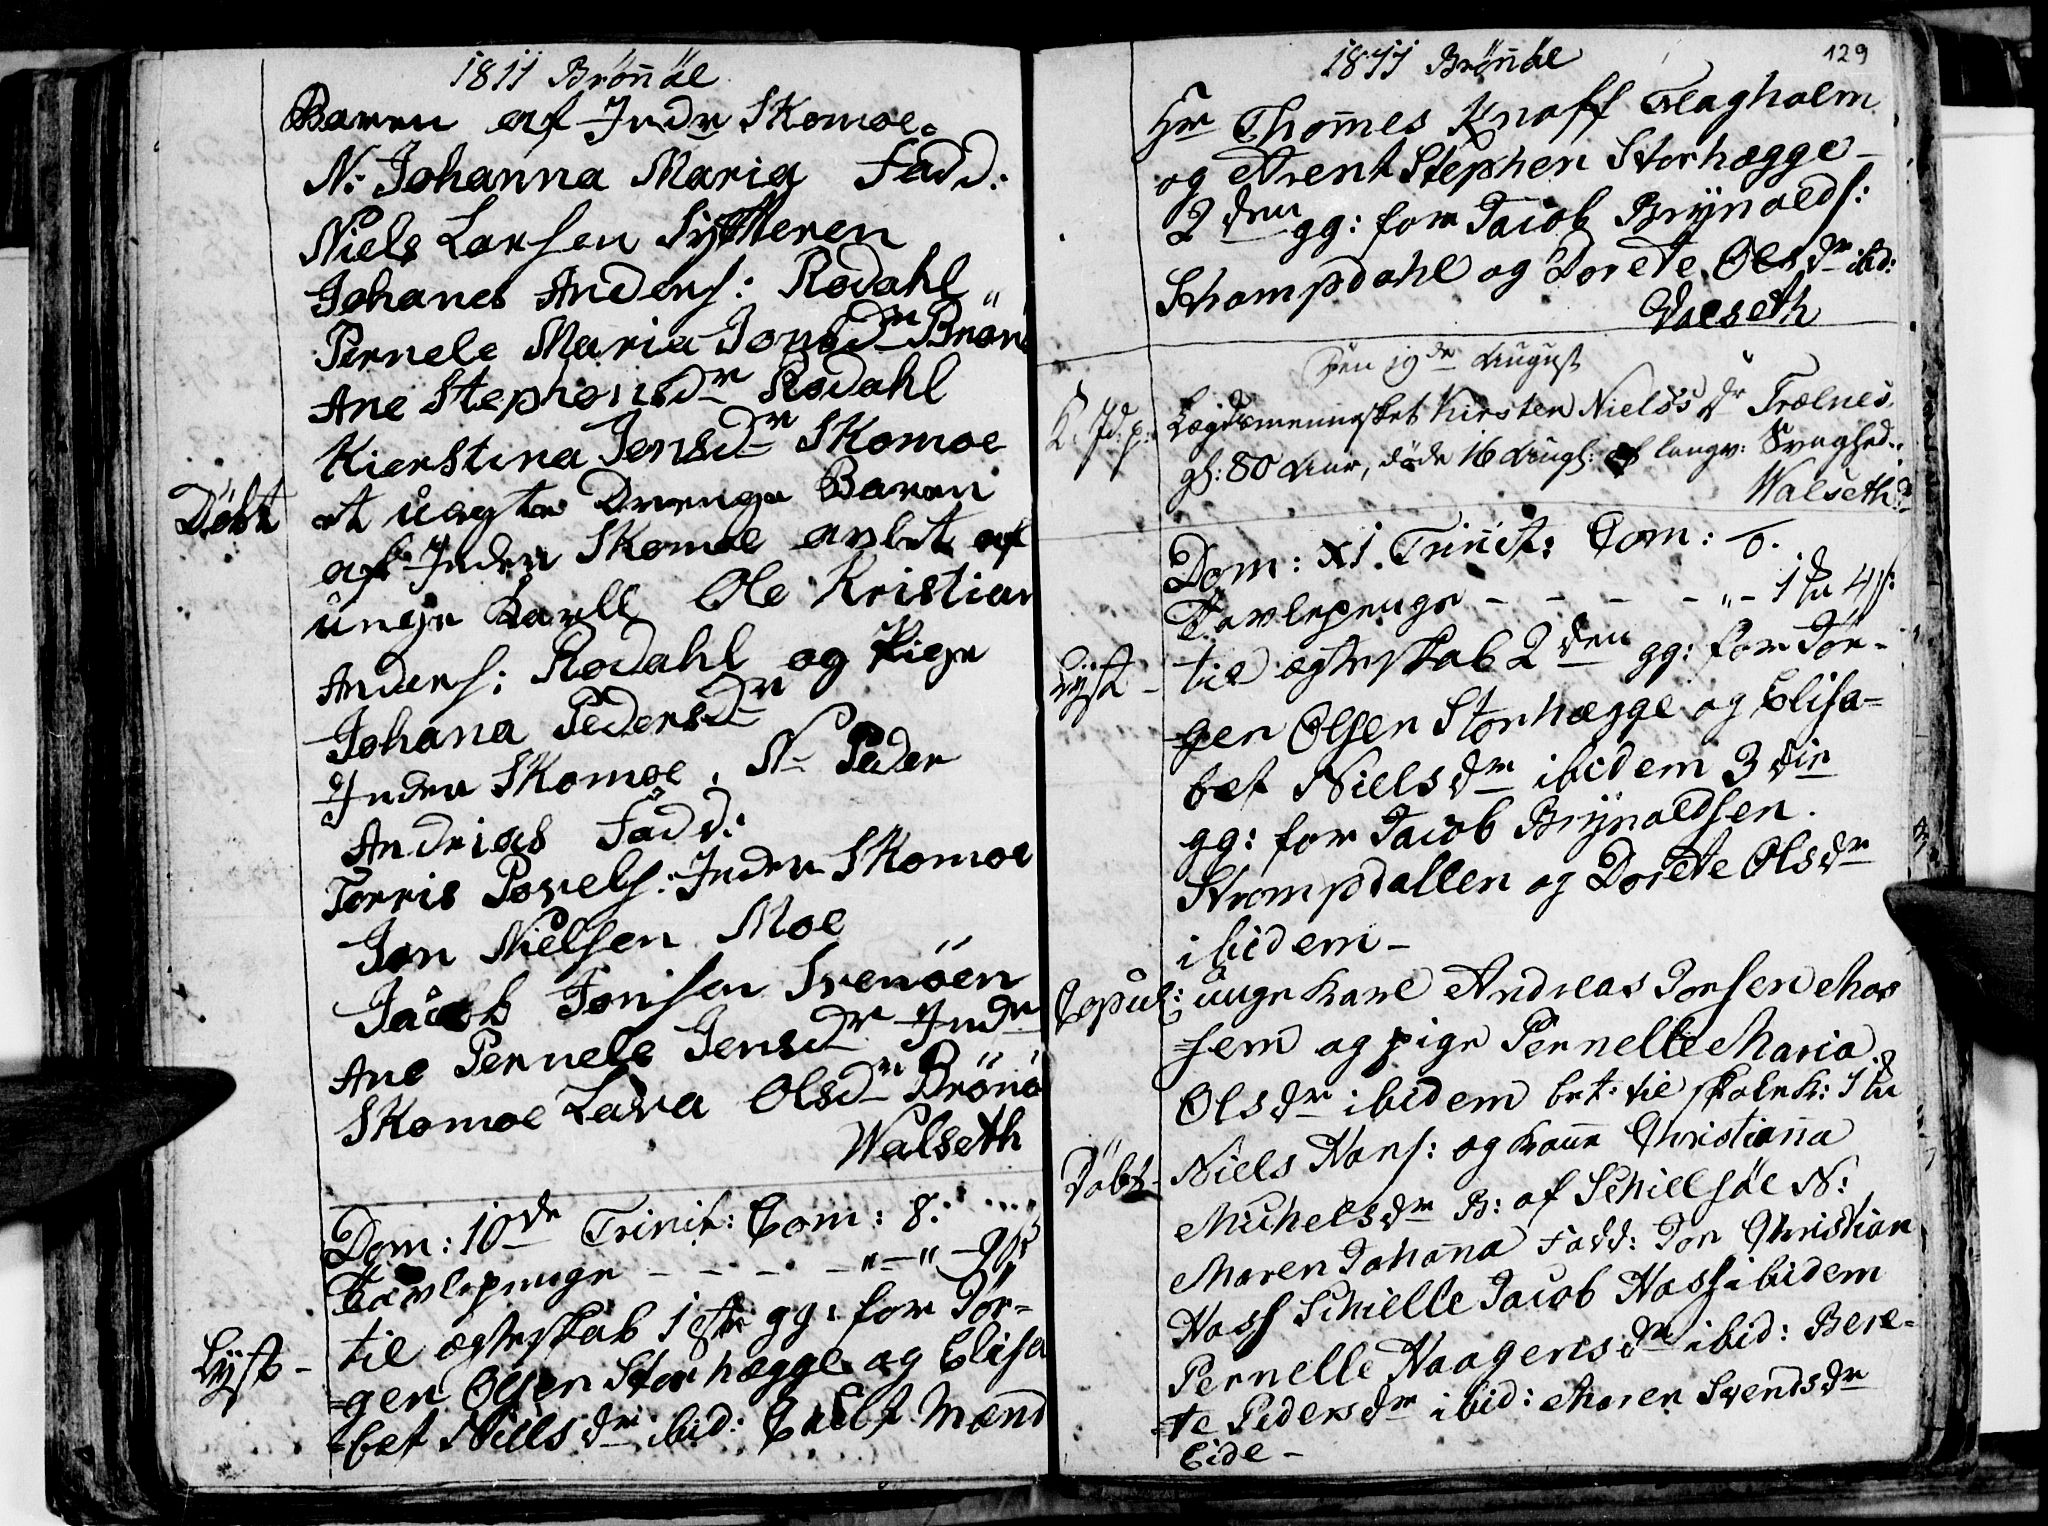 1811 Brönöe
Baren af Indr Skomoe.
N: Johanna Maria Fadd:
Niels Larsen Sÿtteren
Johanes Anders: Rødahl
Pernele Maria Jonsdr Brønö
Ane Stephensdr Rødahl
Kierstina Jensdr Skomoe
Döbt et uægte Drenge Baren
af Indre Skomoe avlet af
unge Karll Ole Kristian
Anders: Rødahl og Pige
Johana Pedersdr
Indre Skomoe. N Peder
Andrias Fadd:
Torris Povels: Indre Skomoe
Jon Nielsen Moe
Jacob Jonsen Svenöen
Ane Pernele Jensdr Indr
Skomoe Lava Olsdr Brönö
Walseth
Dom: 10de Trinit: Com: 8.
Tavlepenge – – – – „ – „ – 9 s:
Lÿst – til ægteskab 1ste gg: for Jör=
=gen Olsen Storhægge og Elisa
=bet Nielsdr ibid: Mænd
129
1811 Brönöe
Hr Thomes Knoff Tilagholm
og Arent Stephen Storhægge –
2den gg: for Jacob Brÿnolds:
Strompdahl og Dorete Olsdr ibid:
Valseth
Den 19de August
K. Jd. p: Lægdsmennisket Kirsten Nielsdr Trælnes,
gl: 80 Aar, döde 16 Augs: af langv: Svaghed.
Walseth
Dom: XI. Trinit: Com: 0.
Tavlepenge – – – – „ – 1 4 s:
Lÿst – til ægteskab 2den gg: for Jör-
=gen Olsen Storhægge og Elisa=
bet Nielsdr ibidem 3die
gg: for Jacob Brÿnoldsen
Strompdallen og Dorete Olsdr
ibidem –
Copul: unge Karl Andreas Jonsen Mos
=sem og pige Pernelle Maria
Olsdr ibidem bet: til skolek: 1
Döbt – Niels Hans: og Kone Christianna
Michelsdr B: af Schielsöe N:
Maren Johanna Fadd: Jon Christian
Hass Schielle Jacob Hass ibidem
Pernelle Haagensdr ibid: Bere-
=te Pedersdr ibid: Maren Svendsdr
Eide –